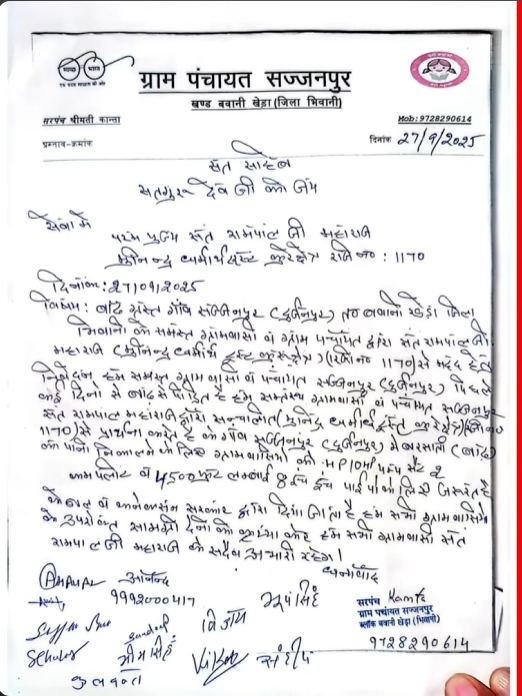 स्वच्छ भारत
एक कदम स्वच्छता की ओर
ग्राम पंचायत सज्जनपुर
खण्ड बवानी खेड़ा (जिला भिवानी)
सरपंच श्रीमती कान्ता
Mob: 9728290614
प्रस्ताव-क्रमांक
दिनांक 27/9/2025
संत साहेब
सतगुरू देव जी की जय
सेवा में
परम पुज्य संत रामपाल जी महाराज
मुनिन्द्र धर्मार्थ ट्रस्ट कुरुक्षेत्र रजि न० : 1170
दिनांक: 27/09/2025
विषय: बाढ़ ग्रस्त गाँव सज्जनपुर (दुर्जनपुर) त० बवानी खेड़ा जिला
भिवानी के समस्त ग्रामवासी व ग्राम पंचायत द्वारा संत रामपाल जी
महाराज (मुनिन्द्र धर्मार्थ ट्रस्ट कुरुक्षेत्र) (रजि न० 1170) से मदद हेतु
निवेदन हम समस्त ग्रामवासी व पंचायत सज्जनपुर (दुर्जनपुर) पिछले
कई दिनो से बाढ से पीड़ित है हम समस्त ग्रामवासी व पंचायत सज्जनपुर
संत रामपाल महाराज द्वारा सन्चालित (मुनिन्द्र धर्मार्थ ट्रस्ट कुरुक्षेत्र) (रजि न०
1170) से प्रार्थना करते है के गाँव सज्जनपुर (दुर्जनपुर) मे बरसाती (बाढ)
के पानी निकालने के लिए ग्रामवासियो को HP 10 पम्प सैट 2
कमपलीट व 4500 फूट लम्बाई 8 इंच पाईपो की लिए जरूरत है
केबल व कनेक्शन सरकार द्वारा दिया जाता है हम सभी ग्रामवासियो
के उपरोक्त सामग्री देने की कृपा करे हम सभी ग्रामवासी संत
रामपाल जी महाराज के सदैव आभारी रहेगे।
धन्यवाद
आनन्द
9992000417
भूप सिंह
सरपंच Kanta
ग्राम पंचायत सज्जनपुर
ब्लॉक बवानी खेड़ा (भिवानी)
9728290614
विजय
Sandeep
भीम सिंह
संदीप
कुलवन्त